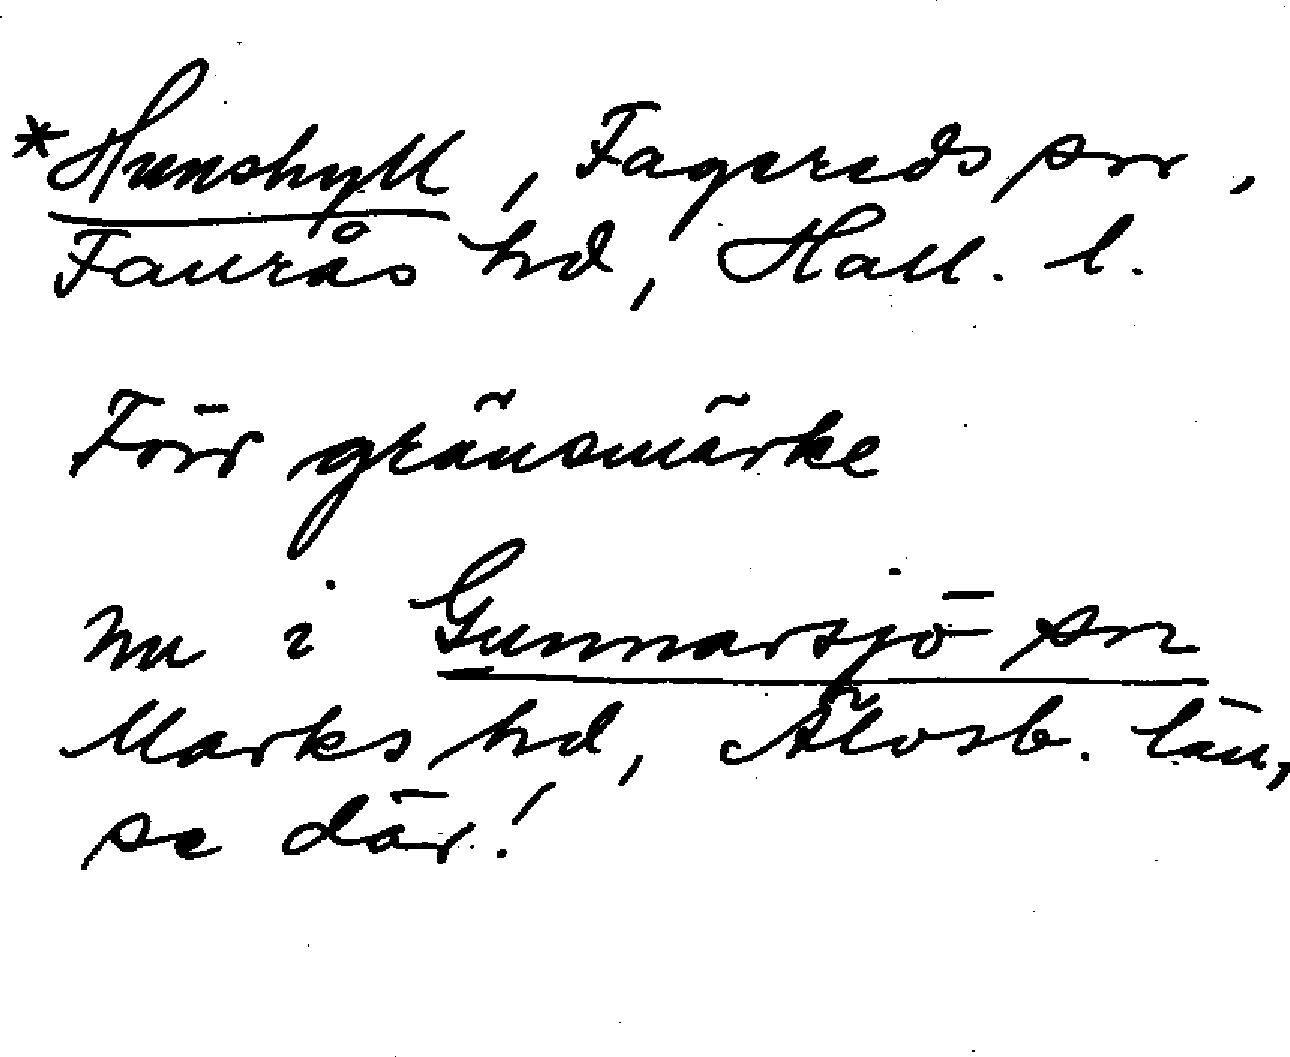 *Hunshyll, Fagereds sn,
Faurås hd, Hall. l.
Förr gränsmärke
nu i Gunnarsjö sn
Marks hd, Älvsb. län,
se där!